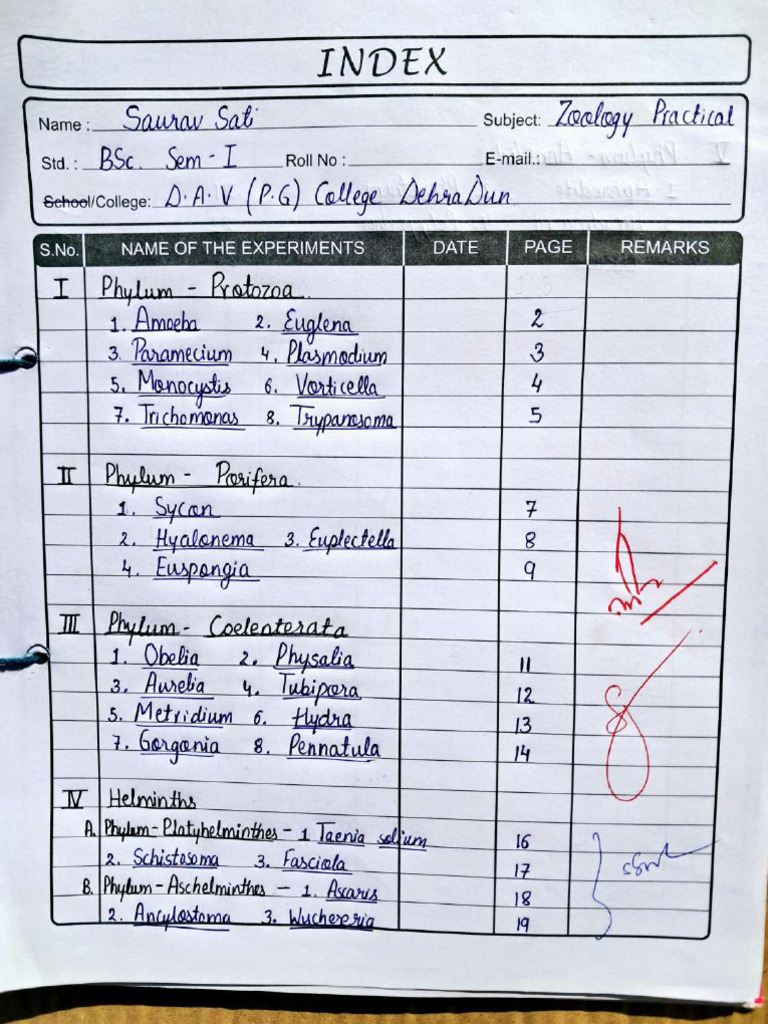 INDEX
Name : Saurav Sati Subject: Zoology Practical
Std. : BSc. Sem - I Roll No : E-mail.:
School/College: D.A.V (P.G) College DehraDun
S.No. NAME OF THE EXPERIMENTS DATE PAGE REMARKS
I Phylum - Protozoa.
1. Amoeba 2. Euglena 2
3. Paramecium 4. Plasmodium 3
5. Monocystis 6. Vorticella 4
7. Trichomonas 8. Trypanosoma 5
II Phylum - Porifera.
1. Sycon 7
2. Hyalonema 3. Euplectella 8
4. Euspongia 9
III Phylum - Coelenterata
1. Obelia 2. Physalia 11
3. Aurelia 4. Tubipora 12
5. Metridium 6. Hydra 13
7. Gorgonia 8. Pennatula 14
IV Helminths
A. Phylum - Platyhelminthes - 1 Taenia solium 16
2. Schistosoma 3. Fasciola 17
B. Phylum - Aschelminthes - 1. Ascaris 18
2. Ancylostoma 3. Wuchereria 19